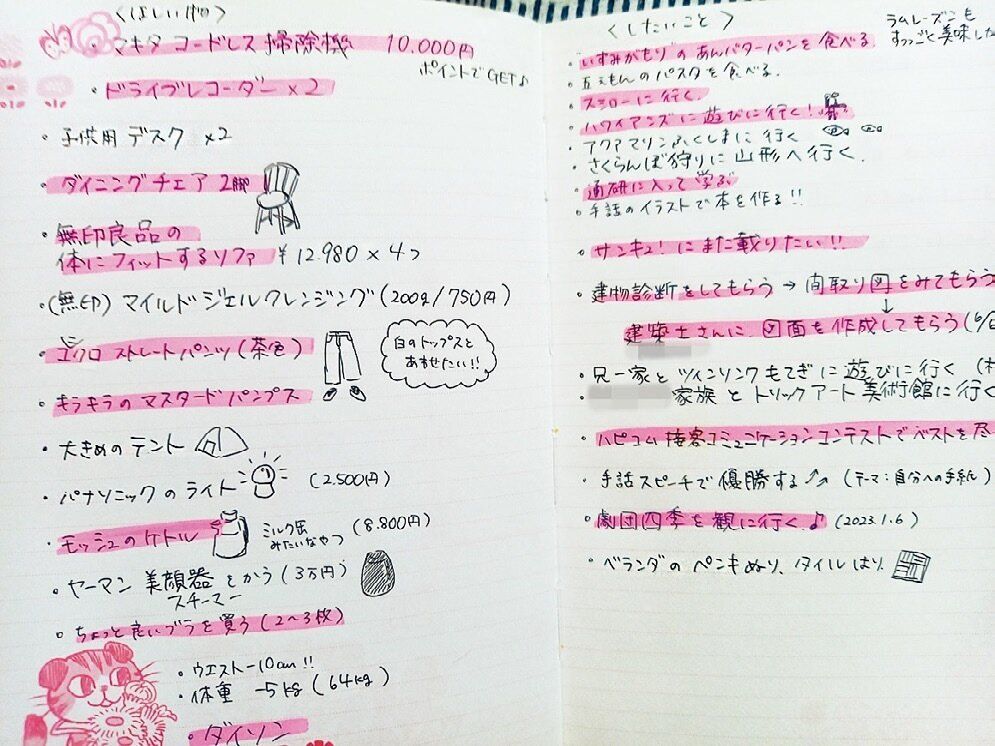 〈ほしいもの〉
・マキタ コードレス 掃除機 10,000円
ポイントでGET♪
・ドライブレコーダー×2
・子供用 デスク ×2
・ダイニングチェア 2脚
・無印良品の
体にフィットするソファ ¥12,980×4つ
・(無印) マイルドジェルクレンジング (200g/750円)
・ユニクロ ストレートパンツ (茶色)
白のトップスと
あわせたい!!
・キラキラのマスタードパンプス
・大きめの テント
・パナソニックの ライト (2,500円)
・モッシュのケトル ミルク缶
みたいなやつ (8,800円)
・ヤーマン 美顔器 をかう (3万円)
スチーマー
・ちょっと良いブラを買う (2〜3枚)
・ウエスト-10cm!!
・体重 -5kg (64kg)
・ダイソン
〈したいこと〉
ラムレーズンも
すっごく美味した
・いずみがもりのあんバターパンを食べる。
・五えもんのパスタを食べる。
・スシローに行く。
・ハワイアンズに遊びに行く!
・アクアマリンふくしまに行く
・さくらんぼ狩りに山形へ行く。
・通研に入って学ぶ
・手話のイラストで本を作る!!
・サンキュ!にまた載りたい!!
・建物診断をしてもらう → 間取り図をみてもらう
↓
建築士さんに 図面を作成してもらう
・兄一家とツインリンクもてぎに遊びに行く
家族とトリックアート美術館に行く
・ハピコム 接客コミュニケーションコンテストでベストを尽
・手話スピーチで優勝する (テーマ:自分への手紙)
・劇団四季を観に行く♪ (2023.1.6)
・ベランダのペンキぬり、タイルはり